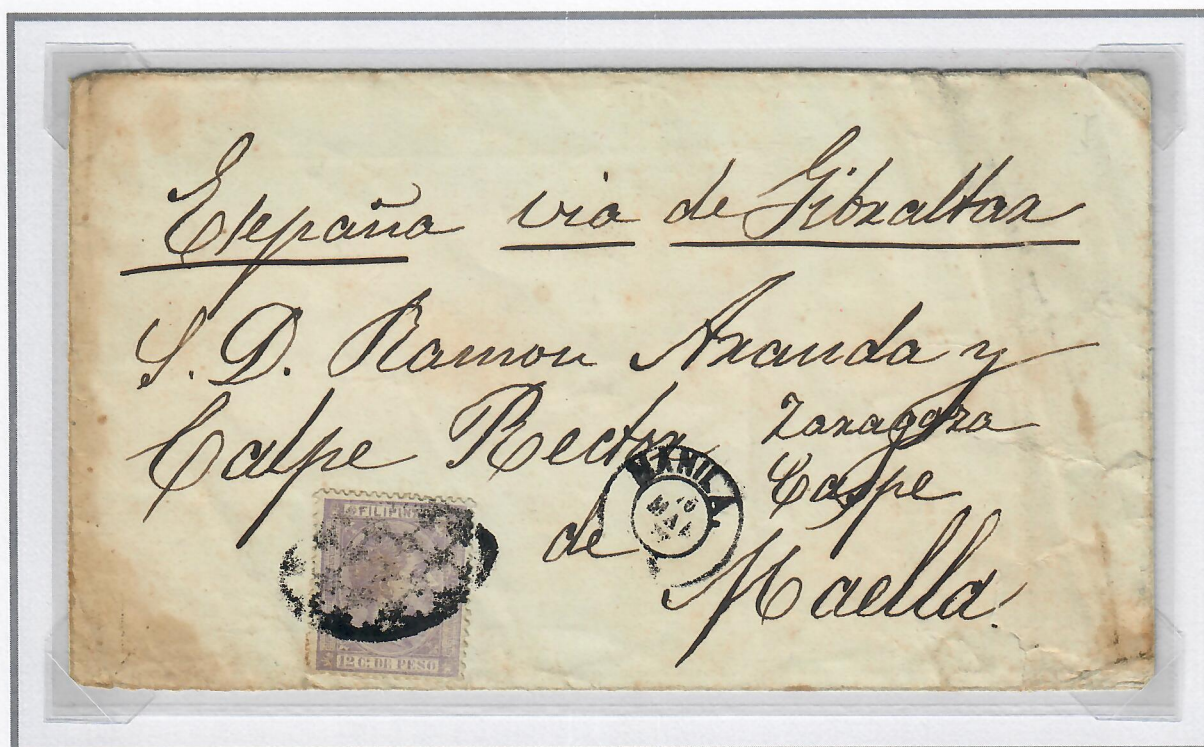 España via de Gibraltar
S. D. Ramon Aranda y
Calpe Rector Zaragoza
Caspe
de Maella.
MANILA.
MAY
FILIPIN
12 C. DE PESO